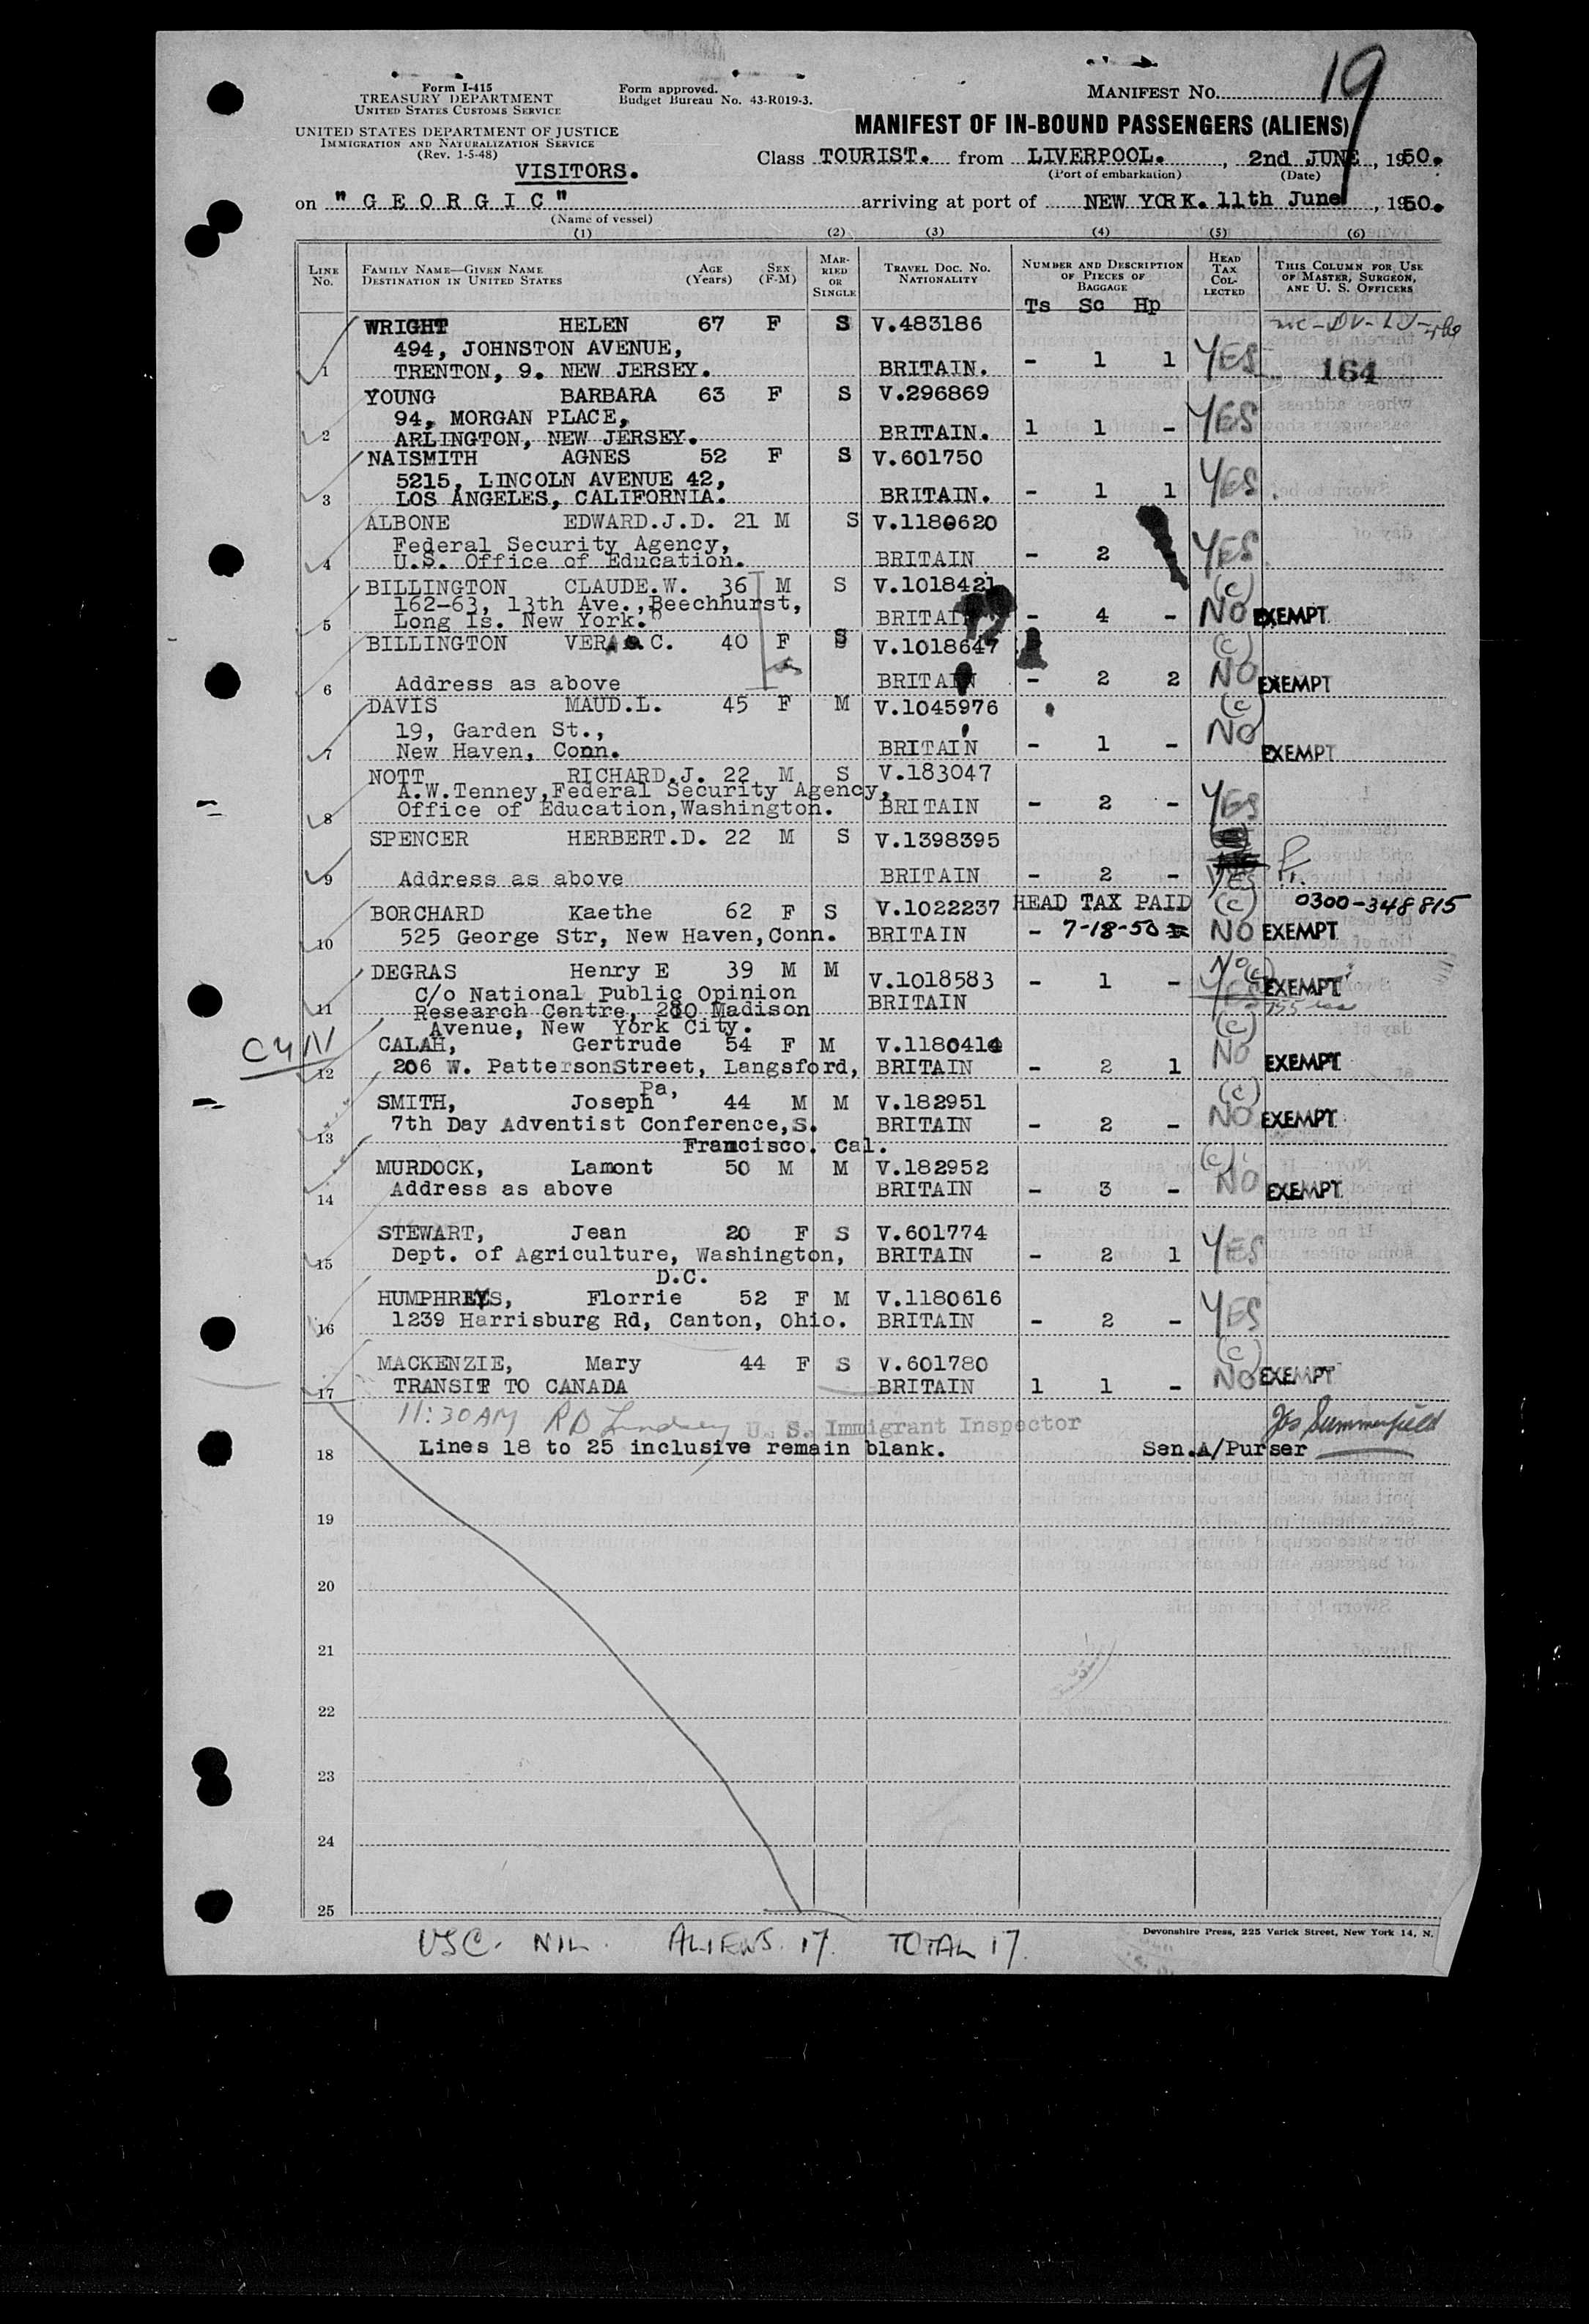 19
Form I-415
TREASURY DEPARTMENT
UNITED STATES CUSTOMS SERVICE
Form approved.
Budget Bureau No. 43-R019-3.
MANIFEST NO.
UNITED STATES DEPARTMENT OF JUSTICE
IMMIGRATION AND NATURALIZATION SERVICE
(Rev. 1-5-48)
MANIFEST OF IN-BOUND PASSENGERS (ALIENS)
VISITORS.
Class TOURIST. from LIVERPOOL. , 2nd JUNE , 1950.
(Port of embarkation) (Date)
on "GEORGIC" arriving at port of NEW YORK. 11th June , 1950.
(Name of vessel)
(1) (2) (3) (4) (5) (6)
LINE No. FAMILY NAME—GIVEN NAME DESTINATION IN UNITED STATES AGE (Years) SEX (F-M) MARRIED OR SINGLE TRAVEL DOC. NO. NATIONALITY NUMBER AND DESCRIPTION OF PIECES OF BAGGAGE HEAD TAX COLLECTED THIS COLUMN FOR USE OF MASTER, SURGEON, AND U. S. OFFICERS
Ts Sc Hp
WRIGHT HELEN 67 F S V.483186
494, JOHNSTON AVENUE,
1 TRENTON, 9. NEW JERSEY. BRITAIN. - 1 1 YES 164
YOUNG BARBARA 63 F S V.296869
94, MORGAN PLACE,
2 ARLINGTON, NEW JERSEY. BRITAIN. 1 1 - YES
NAISMITH AGNES 52 F S V.601750
5215, LINCOLN AVENUE 42,
3 LOS ANGELES, CALIFORNIA. BRITAIN. - 1 1 YES
ALBONE EDWARD.J.D. 21 M S V.1180620
Federal Security Agency,
4 U.S. Office of Education. BRITAIN - 2 YES
BILLINGTON CLAUDE.W. 36 M S V.1018421 (C)
162-63, 13th Ave.,Beechhurst,
5 Long Is. New York. BRITAIN - 4 - NO EXEMPT
BILLINGTON VERA C. 40 F S V.1018647 (C)
6 Address as above BRITAIN - 2 2 NO EXEMPT
DAVIS MAUD.L. 45 F M V.1045976 (C)
19, Garden St.,
7 New Haven, Conn. BRITAIN - 1 - NO EXEMPT
NOTT RICHARD.J. 22 M S V.183047
A.W.Tenney,Federal Security Agency,
8 Office of Education,Washington. BRITAIN - 2 - YES
SPENCER HERBERT.D. 22 M S V.1398395
9 Address as above BRITAIN - 2 - YES
BORCHARD Kaethe 62 F S V.1022237 HEAD TAX PAID (C) 0300-348815
10 525 George Str, New Haven,Conn. BRITAIN - 7-18-50 NO EXEMPT
DEGRAS Henry E 39 M M V.1018583 - 1 - No (C) EXEMPT
C/o National Public Opinion BRITAIN
11 Research Centre, 280 Madison
Avenue, New York City.
CALAH, Gertrude 54 F M V.1180414 (C)
12 206 W. PattersonStreet, Langsford, BRITAIN - 2 1 NO EXEMPT
Pa,
SMITH, Joseph 44 M M V.182951 (C)
13 7th Day Adventist Conference,S. BRITAIN - 2 - NO EXEMPT
Francisco. Cal.
MURDOCK, Lamont 50 M M V.182952 (C)
14 Address as above BRITAIN - 3 - NO EXEMPT
STEWART, Jean 20 F S V.601774
15 Dept. of Agriculture, Washington, BRITAIN - 2 1 YES
D.C.
HUMPHREYS, Florrie 52 F M V.1180616
16 1239 Harrisburg Rd, Canton, Ohio. BRITAIN - 2 - YES
MACKENZIE, Mary 44 F S V.601780 (C)
17 TRANSIT TO CANADA BRITAIN 1 1 - NO EXEMPT
11:30 AM RD Lindsey U. S. Immigrant Inspector Jos Summerfield
18 Lines 18 to 25 inclusive remain blank. Sen.A/Purser
19
20
21
22
23
24
25
USC. NIL. ALIENS. 17. TOTAL 17.
Devonshire Press, 225 Varick Street, New York 14, N.